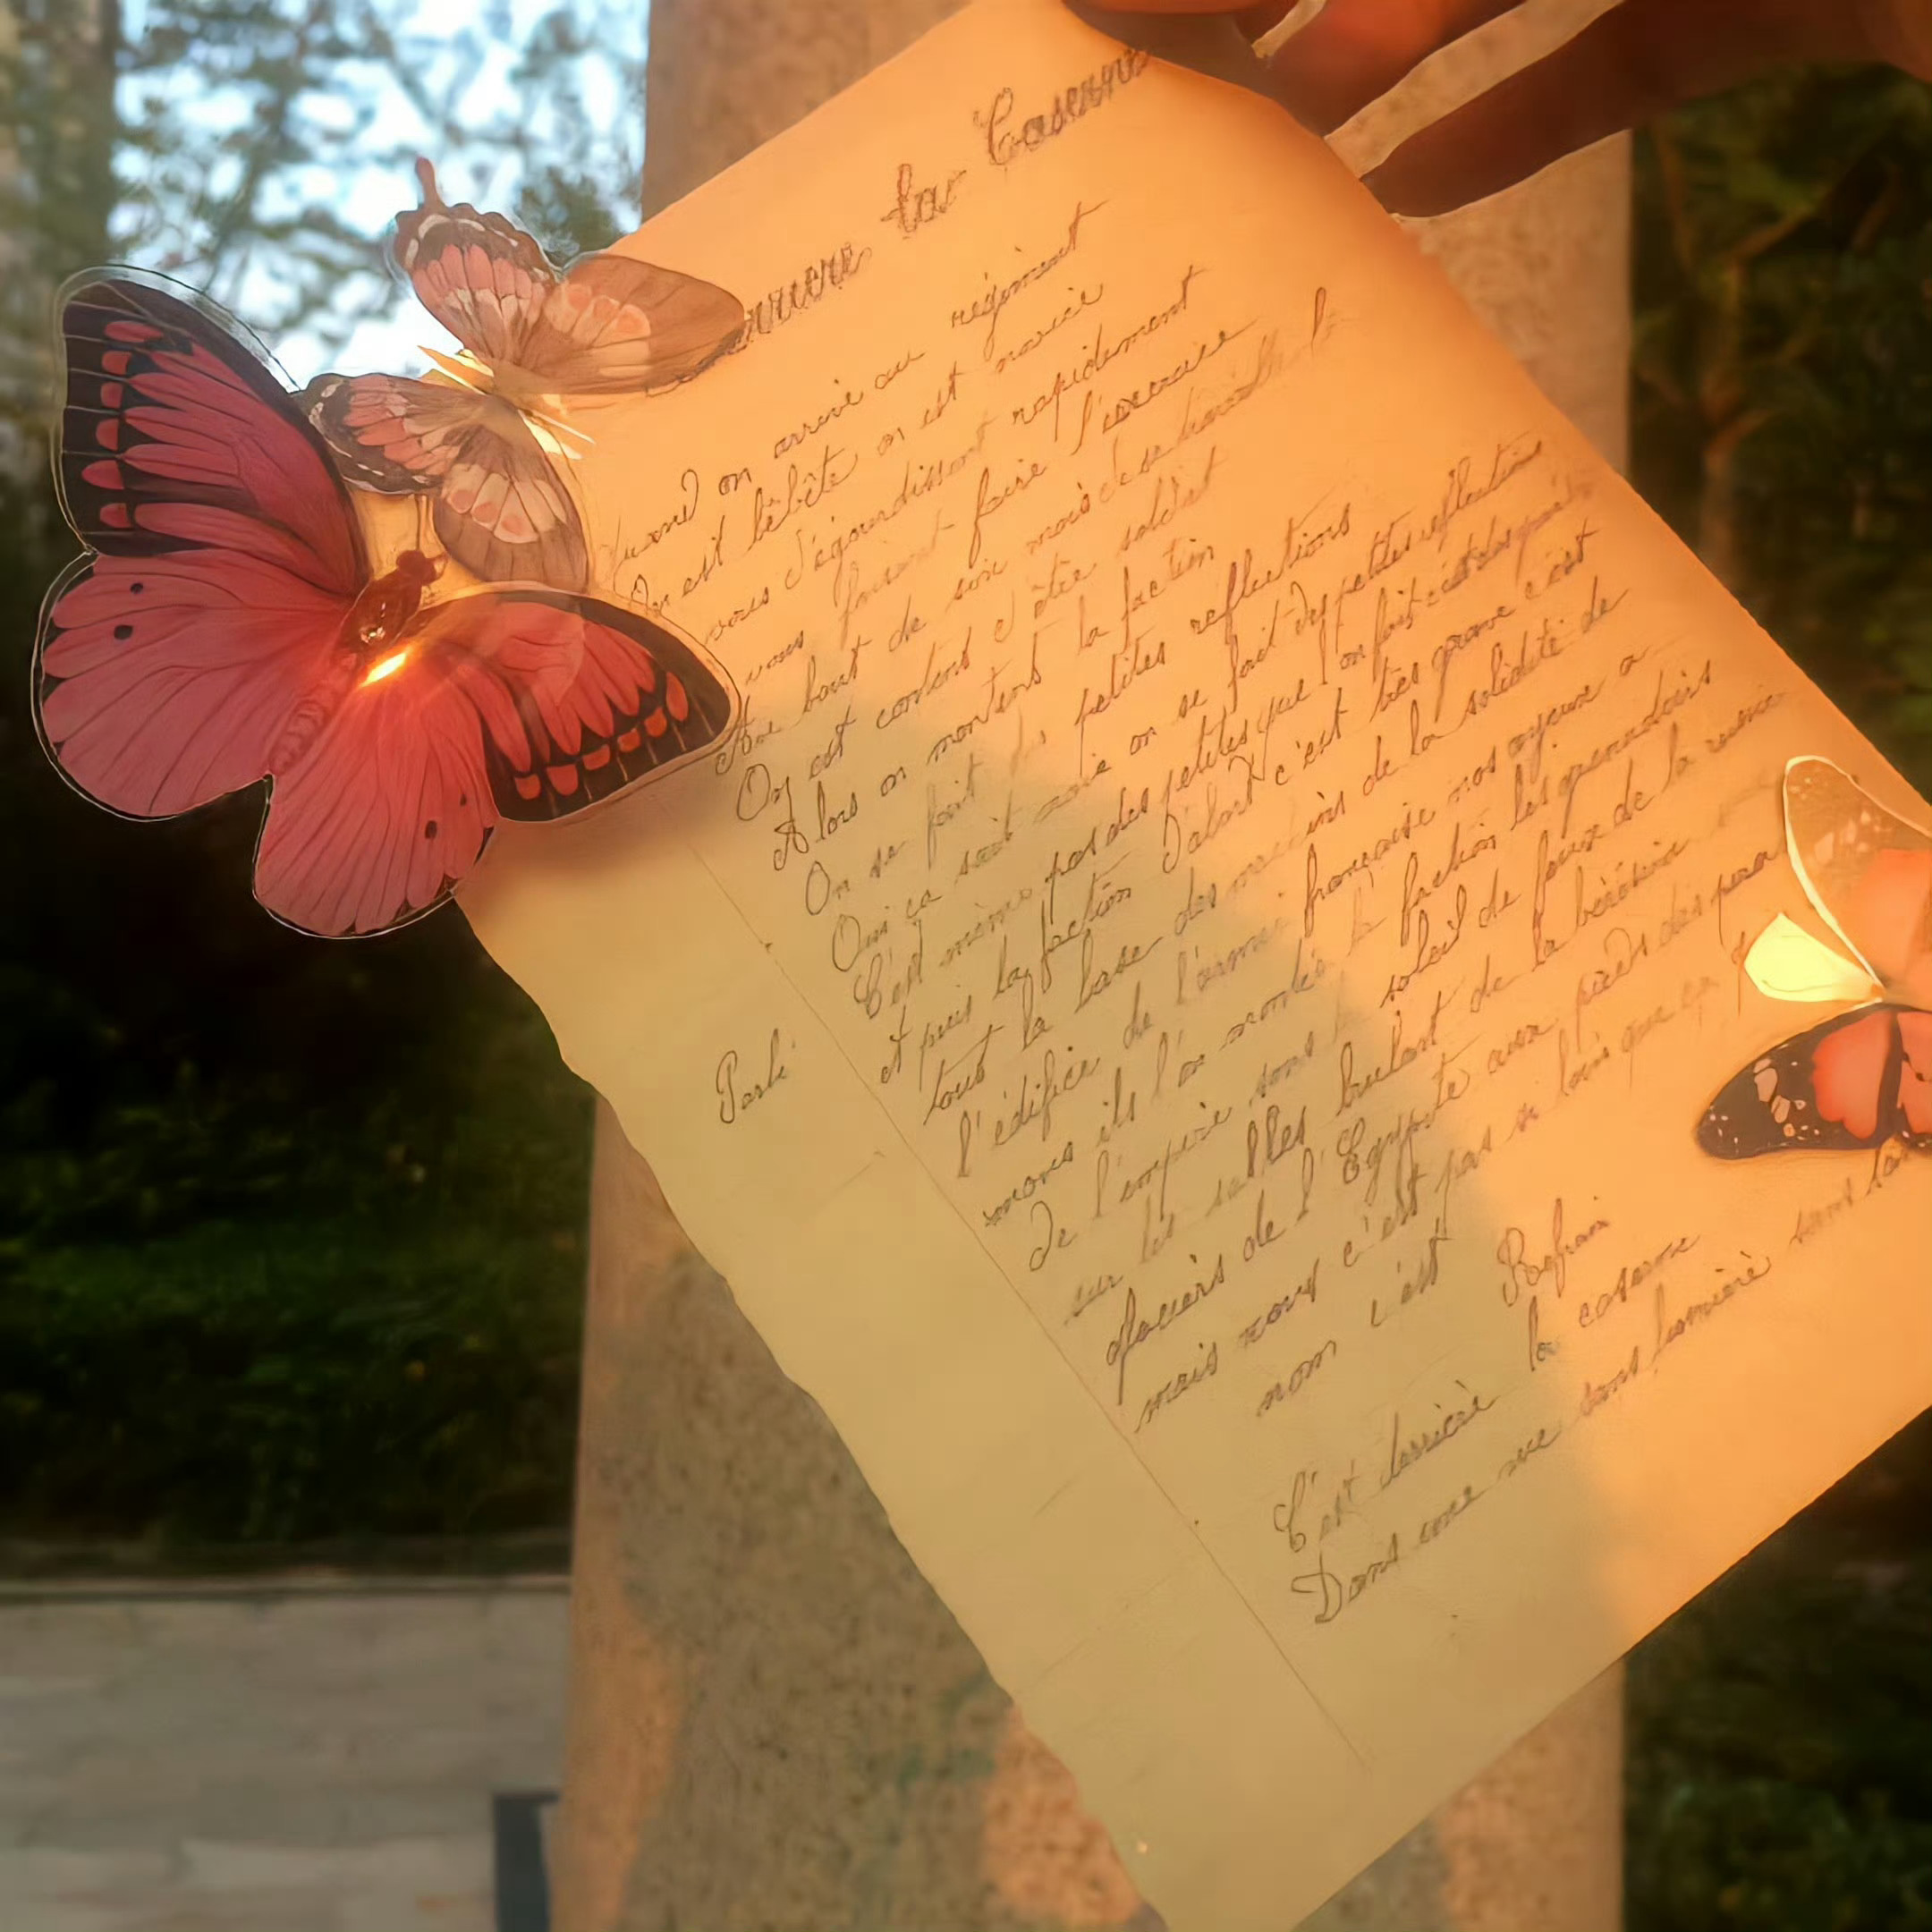 la Caserne
Quand on arrive au régiment
On est bêbête on est novice
vous d'égourdissent rapidement
vous faisant faire l'exercice
Au bout de son mois de
On est content d'être soldat
Alors on montent la faction
On se fait des petites reflections
Parlé
Oui ça sait on se fait des petites reflections
C'est même pas des petites que l'on fait c'est des
et puis la faction D'abort c'est très grave c'est
tout la base des de la solidité de
l'édifice de l'armée française nos ayeux a
nous ils l'on montés la faction les grenadiers
De l'empire sous le soleil de
sur les salbles brulant de la bérésina
glaciers de l'Egypte aux pieds des
mais nous c'est pas si loin que ça
nom c'est
Refrain
C'est derrière la caserne
Dans une rue sans lumière sans